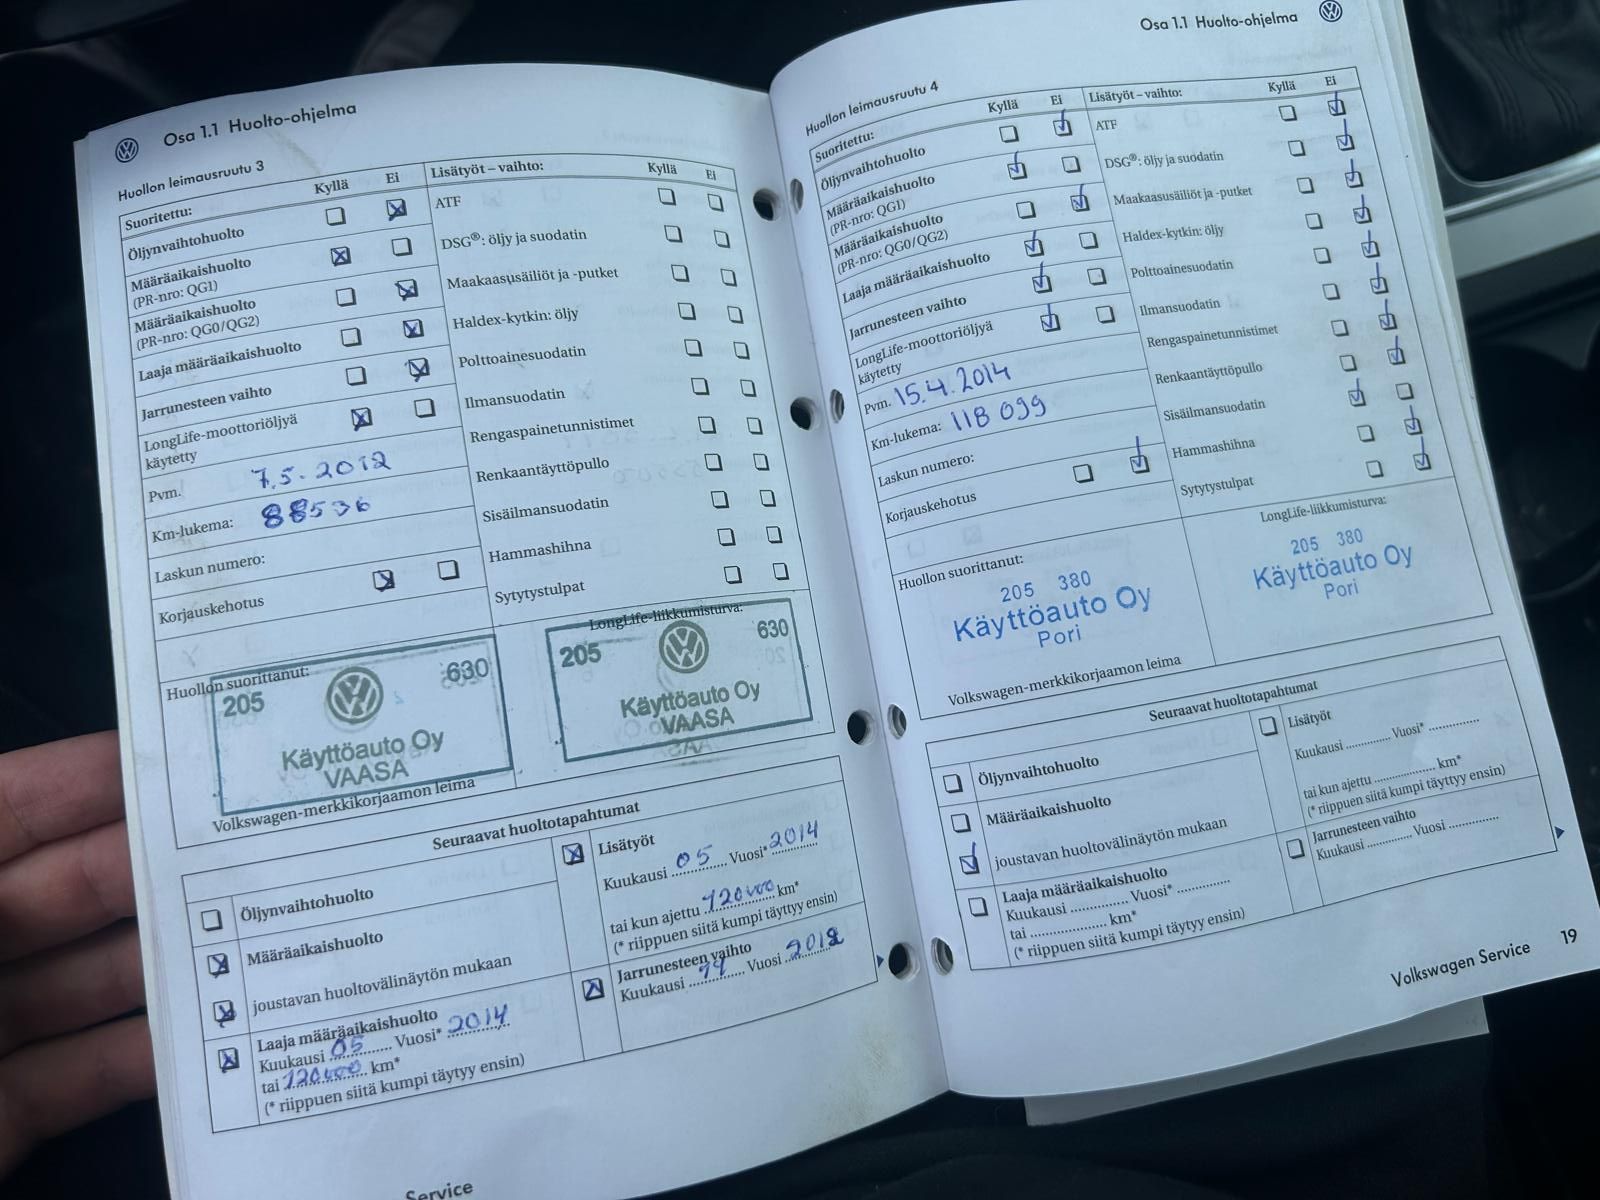 Osa 1.1 Huolto-ohjelma
Huollon leimausruutu 3
Suoritettu: Kyllä Ei
Öljynvaihtohuolto
Määräaikaishuolto
(PR-nro: QG1)
Määräaikaishuolto
(PR-nro: QG0/QG2)
Laaja määräaikaishuolto
Jarrunesteen vaihto
LongLife-moottoriöljyä
käytetty
Pvm. 7.5.2012
Km-lukema: 88536
Laskun numero:
Korjauskehotus
Lisätyöt – vaihto: Kyllä Ei
ATF
DSG®: öljy ja suodatin
Maakaasusäiliöt ja -putket
Haldex-kytkin: öljy
Polttoainesuodatin
Ilmansuodatin
Rengaspainetunnistimet
Renkaantäyttöpullo
Sisäilmansuodatin
Hammashihna
Sytytystulpat
Huollon suorittanut:
205 630
Käyttöauto Oy
VAASA
Volkswagen-merkkikorjaamon leima
LongLife-liikkumisturva:
205 630
Käyttöauto Oy
VAASA
Seuraavat huoltotapahtumat
Öljynvaihtohuolto
Määräaikaishuolto
joustavan huoltovälinäytön mukaan
Laaja määräaikaishuolto
Kuukausi 05 Vuosi* 2014
tai 120000 km*
(* riippuen siitä kumpi täytyy ensin)
Lisätyöt
Kuukausi 05 Vuosi* 2014
tai kun ajettu 120000 km*
(* riippuen siitä kumpi täytyy ensin)
Jarrunesteen vaihto
Kuukausi Vuosi 2012
Service
Osa 1.1 Huolto-ohjelma
Huollon leimausruutu 4
Suoritettu: Kyllä Ei
Öljynvaihtohuolto
Määräaikaishuolto
(PR-nro: QG1)
Määräaikaishuolto
(PR-nro: QG0/QG2)
Laaja määräaikaishuolto
Jarrunesteen vaihto
LongLife-moottoriöljyä
käytetty
Pvm. 15.4.2014
Km-lukema: 118 099
Laskun numero:
Korjauskehotus
Lisätyöt – vaihto: Kyllä Ei
ATF
DSG®: öljy ja suodatin
Maakaasusäiliöt ja -putket
Haldex-kytkin: öljy
Polttoainesuodatin
Ilmansuodatin
Rengaspainetunnistimet
Renkaantäyttöpullo
Sisäilmansuodatin
Hammashihna
Sytytystulpat
Huollon suorittanut:
205 380
Käyttöauto Oy
Pori
Volkswagen-merkkikorjaamon leima
LongLife-liikkumisturva:
205 380
Käyttöauto Oy
Pori
Seuraavat huoltotapahtumat
Öljynvaihtohuolto
Määräaikaishuolto
joustavan huoltovälinäytön mukaan
Laaja määräaikaishuolto
Kuukausi Vuosi*
tai km*
(* riippuen siitä kumpi täytyy ensin)
Lisätyöt
Kuukausi Vuosi*
tai kun ajettu km*
(* riippuen siitä kumpi täytyy ensin)
Jarrunesteen vaihto
Kuukausi Vuosi
Volkswagen Service 19